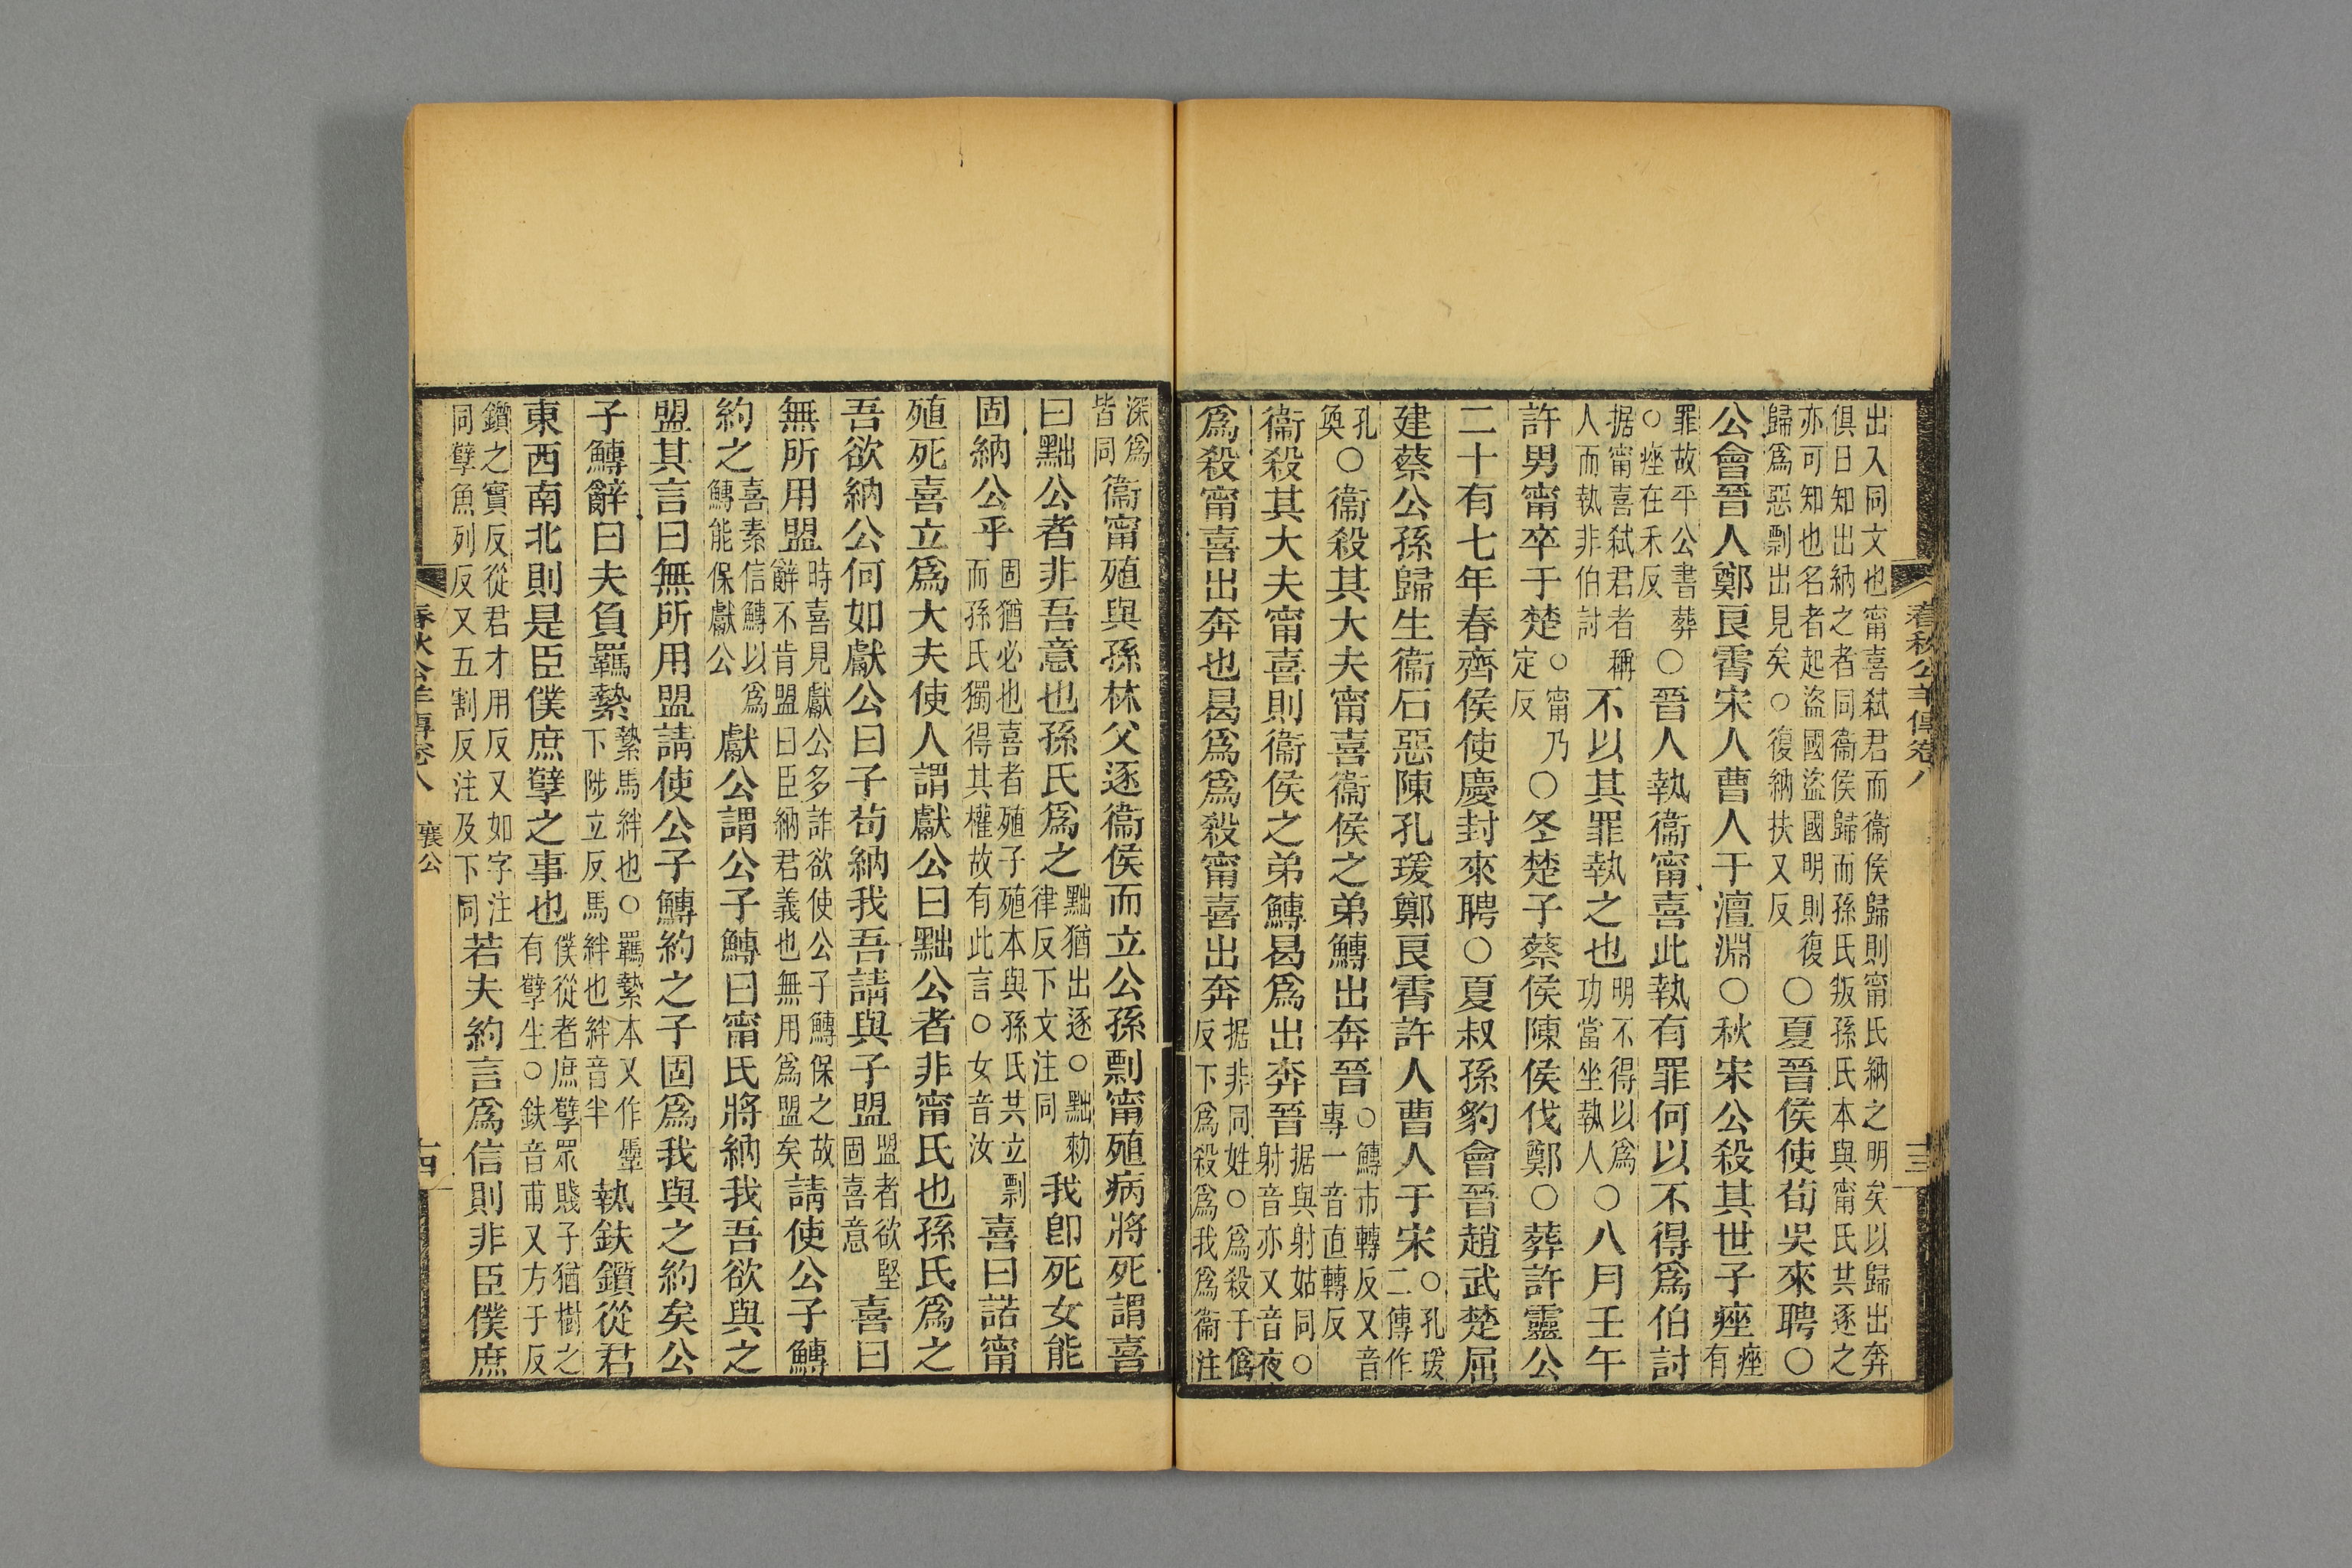 春秋公羊傳卷八
十三
出入同文也甯喜弑君而衞侯歸則甯氏納之明矣以歸出奔
俱日知出納之者同衞侯歸而孫氏叛孫氏本與甯氏共逐之
亦可知也名者起盜國盜國明則復
歸爲惡剽出見矣○復納扶又反
○夏晉侯使荀吳來聘○
公會晉人鄭良霄宋人曹人于澶淵○秋宋公殺其世子痤
痤有
罪故平公書葬
○痤在禾反
○晉人執衞甯喜此執有罪何以不得爲伯討
据甯喜弑君者稱
人而執非伯討
不以其罪執之也
明不得以爲
功當坐執人
○八月壬午
許男甯卒于楚
○甯乃
定反
○冬楚子蔡侯陳侯伐鄭○葬許靈公
二十有七年春齊侯使慶封來聘○夏叔孫豹會晉趙武楚屈
建蔡公孫歸生衞石惡陳孔瑗鄭良霄許人曹人于宋
○孔瑗
二傳作
孔
奐
○衞殺其大夫甯喜衞侯之弟鱄出奔晉
○鱄市轉反又音
專一音直轉反
衞殺其大夫甯喜則衞侯之弟鱄曷爲出奔晉
据與射姑同○
射音亦又音夜
爲殺甯喜出奔也曷爲爲殺甯喜出奔
据非同姓○爲殺于僞
反下爲殺爲我爲衞注
深爲
皆同
衞甯殖與孫林父逐衞侯而立公孫剽甯殖病將死謂喜
曰黜公者非吾意也孫氏爲之
黜猶出逐○黜勑
律反下文注同
我卽死女能
固納公乎
固猶必也喜者殖子殖本與孫氏共立剽
而孫氏獨得其權故有此言○女音汝
喜曰諾甯
殖死喜立爲大夫使人謂獻公曰黜公者非甯氏也孫氏爲之
吾欲納公何如獻公曰子苟納我吾請與子盟
盟者欲堅
固喜意
喜曰
無所用盟
時喜見獻公多詐欲使公子鱄保之故
辭不肯盟曰臣納君義也無用爲盟矣
請使公子鱄
約之
喜素信鱄以爲
鱄能保獻公
獻公謂公子鱄曰甯氏將納我吾欲與之
盟其言曰無所用盟請使公子鱄約之子固爲我與之約矣公
子鱄辭曰夫負羈縶
縶馬絆也○羈縶本又作馽
下陟立反馬絆也絆音半
執鈇鑕從君
東西南北則是臣僕庶孽之事也
僕從者庶孽眾賤子猶樹之
有孽生○鈇音甫又方于反
鑕之實反從君才用反又如字注
同孽魚列反又五割反注及下同
若夫約言爲信則非臣僕庶
春秋公羊傳卷八
襄公
十四